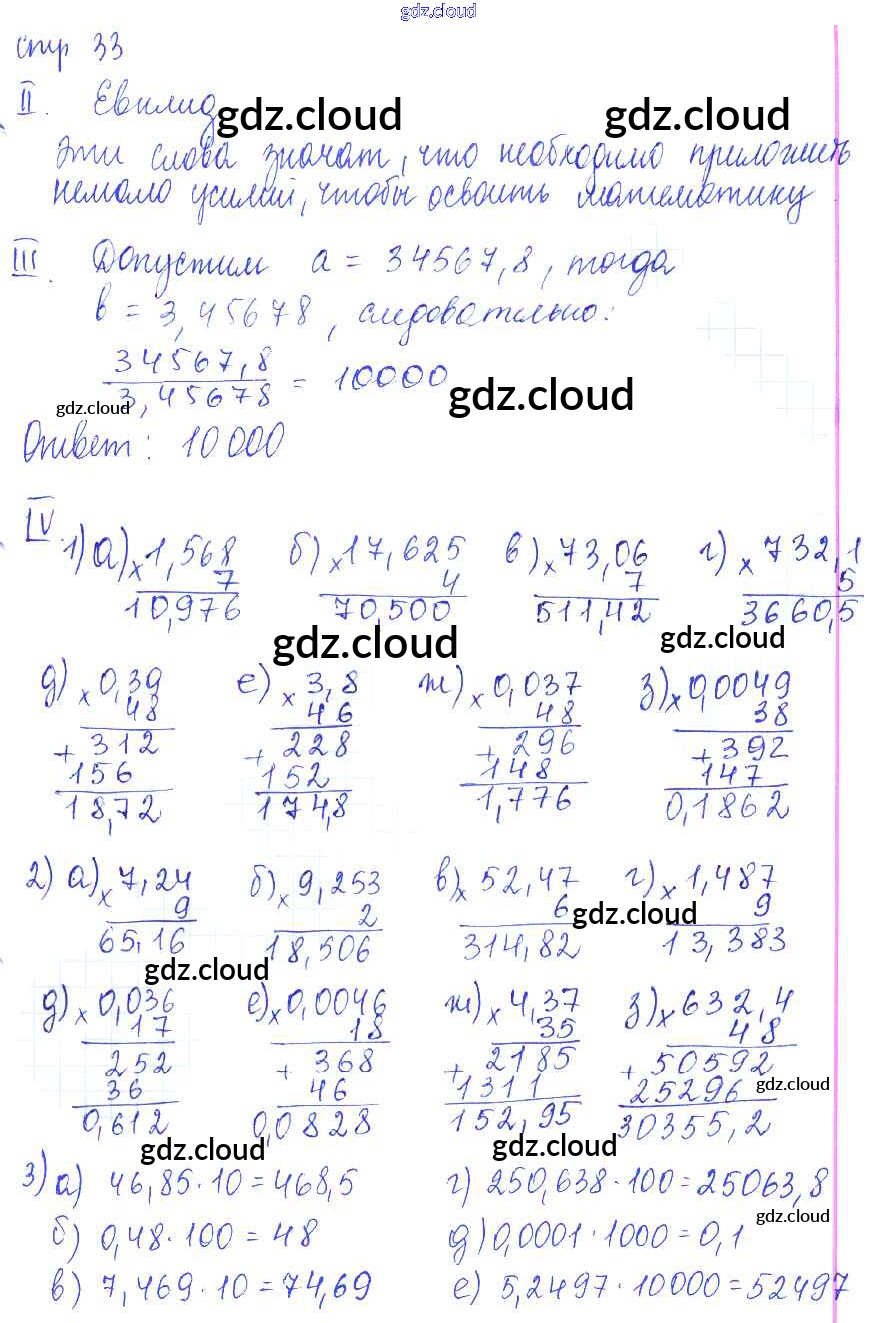 gdz.cloud
стр 33
II. Евклид gdz.cloud gdz.cloud
Эти слова значат, что необходимо приложить
немало усилий, чтобы освоить математику
III. Допустим a = 34567,8, тогда
b = 3,45678, следовательно:
34567,8
3,45678 = 10000 gdz.cloud
gdz.cloud
Ответ: 10000
IV. 1) а) × 1,568 б) × 17,625 в) × 73,06 г) × 732,1
7 4 7 5
10,976 70,500 511,42 3660,5
gdz.cloud gdz.cloud
д) × 0,39 е) × 3,8 ж) × 0,037 з) × 0,0049
48 46 48 38
+ 312 + 228 + 296 + 392
156 152 148 147
18,72 174,8 1,776 0,1862
2) а) × 7,24 б) × 9,253 в) × 52,47 г) × 1,487
9 2 6 gdz.cloud 9
65,16 18,506 314,82 13,383
gdz.cloud
д) × 0,036 е) × 0,0046 ж) × 4,37 з) × 632,4
17 18 35 48
252 + 368 + 2185 + 50592
36 46 1311 25296 gdz.cloud
0,612 0,0828 152,95 30355,2
gdz.cloud gdz.cloud
3) а) 46,85·10=468,5 г) 250,638·100=25063,8
gdz.cloud
б) 0,48·100=48 д) 0,0001·1000=0,1
в) 7,469·10=74,69 е) 5,2497·10000=52497